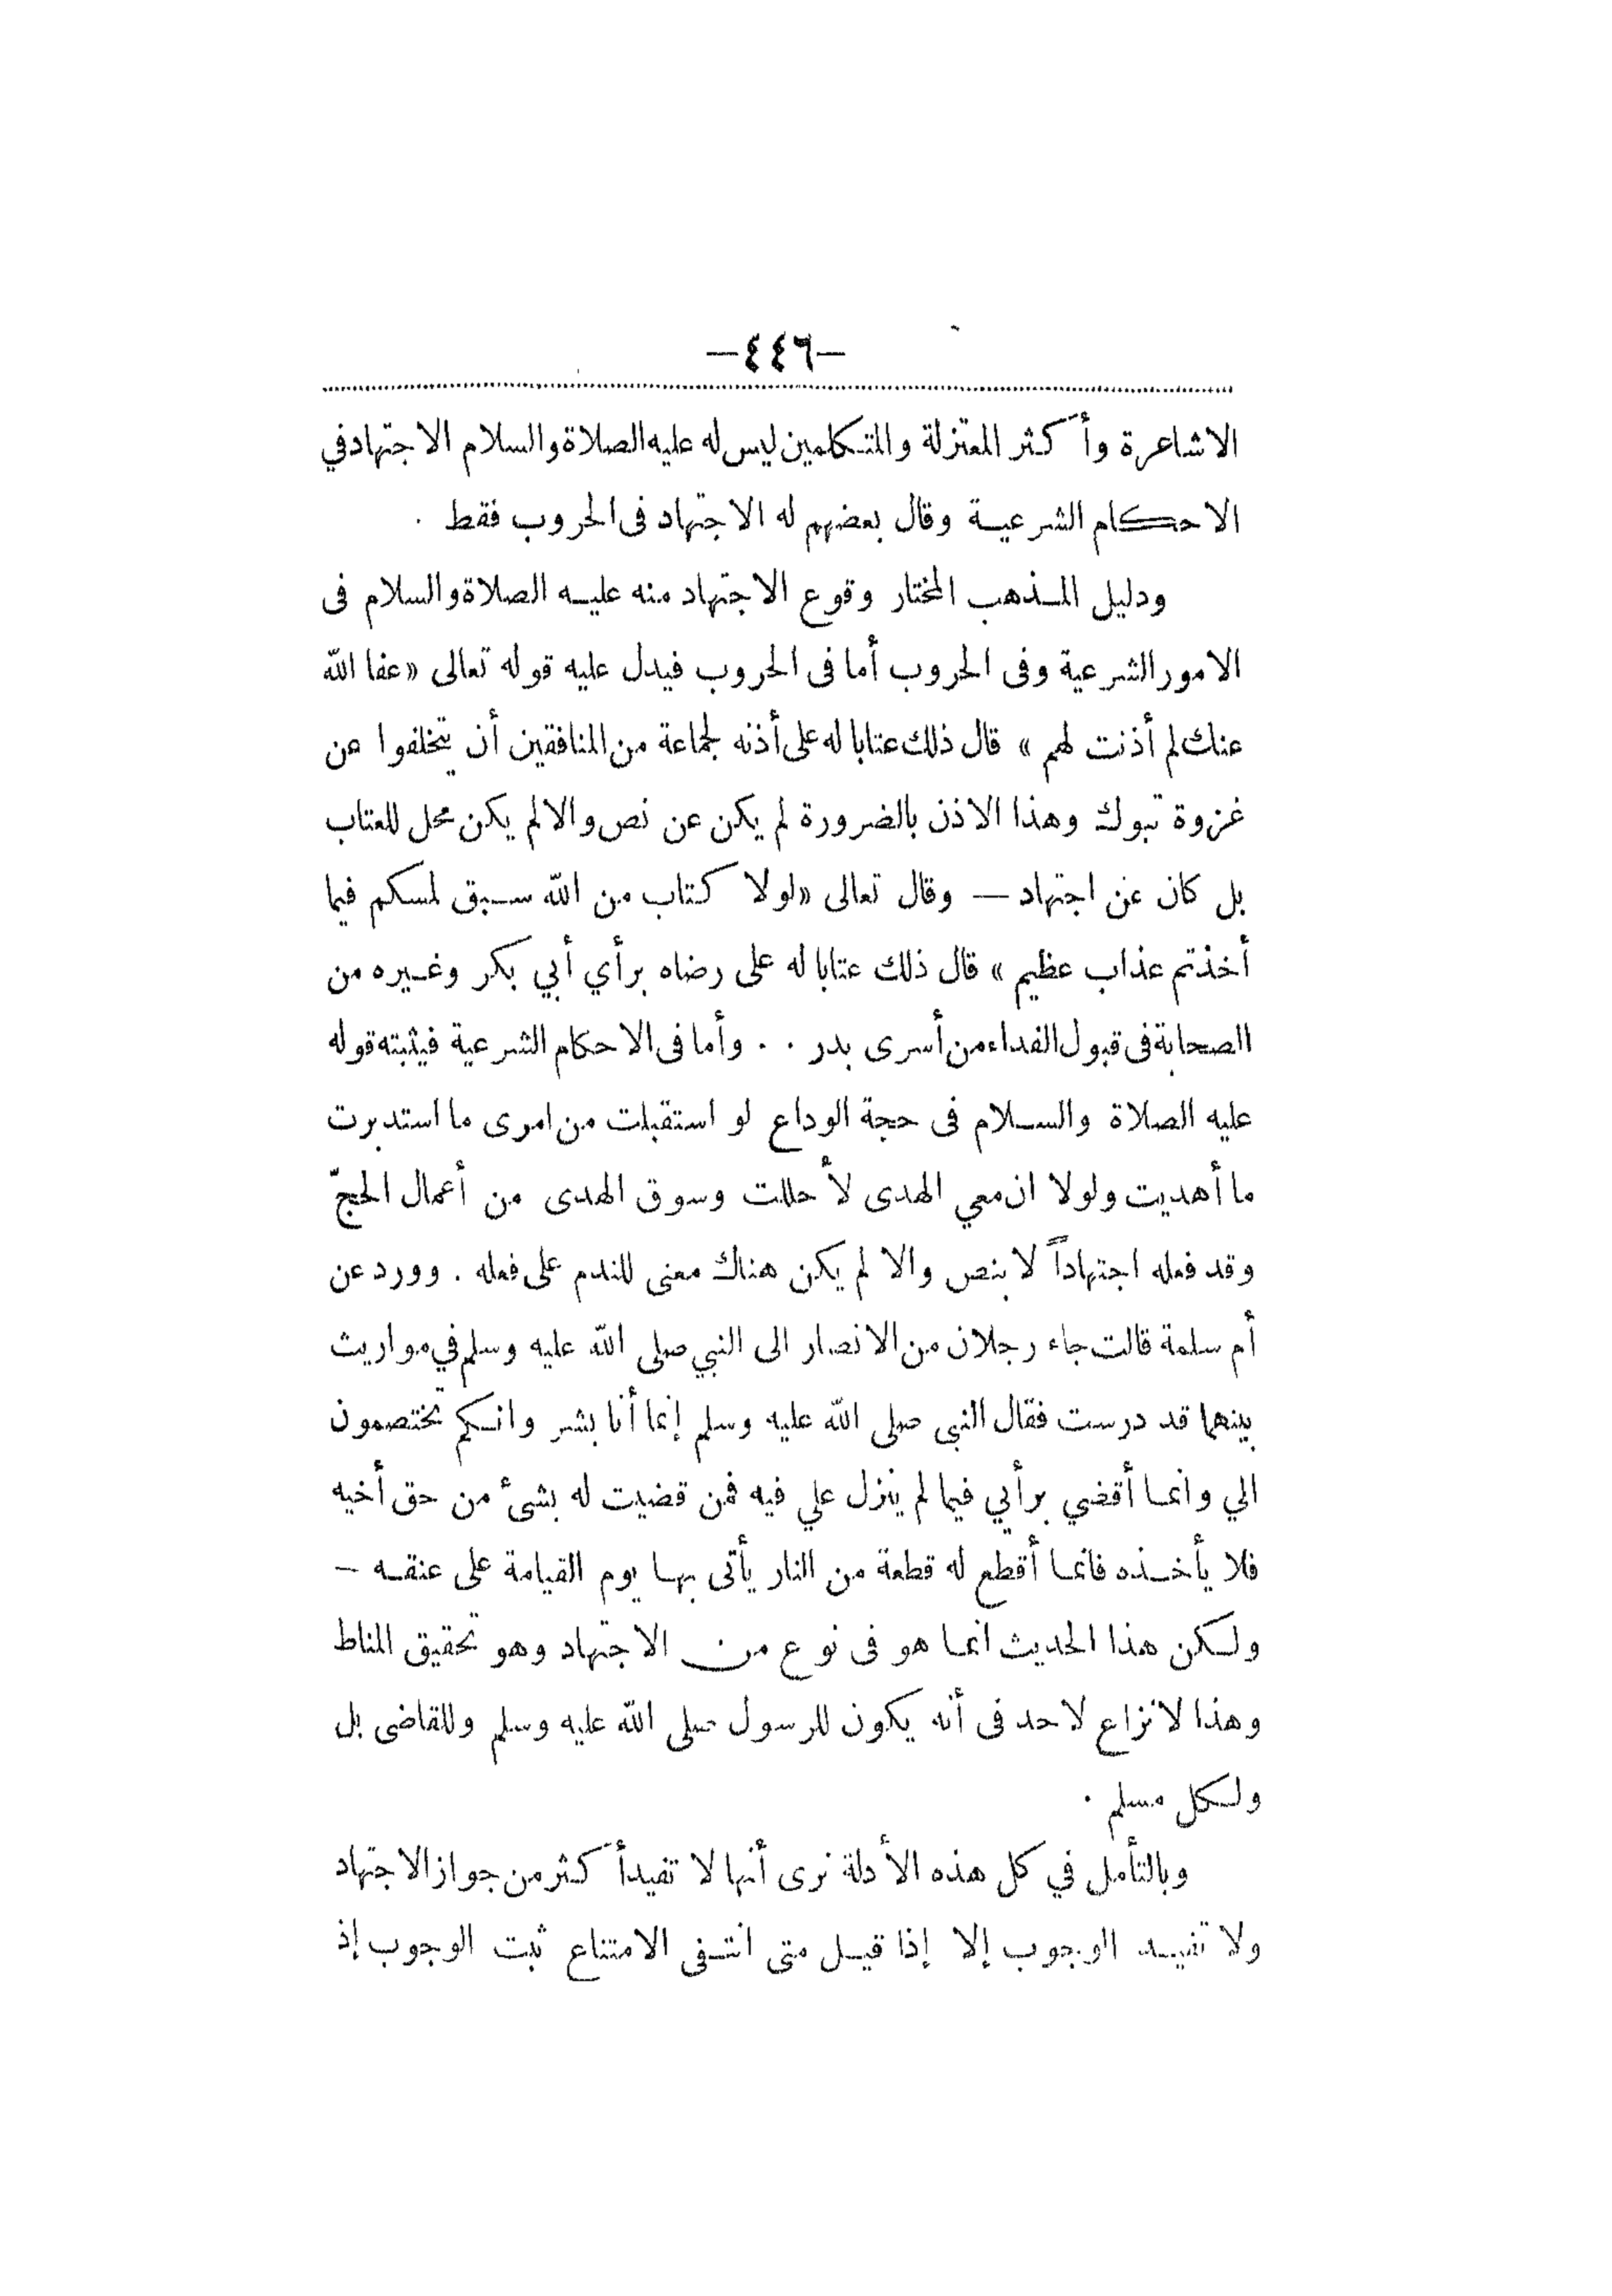 —٤٤٦—
الاشاعرة وأكثر المعتزلة والمتكلمين ليس له عليه الصلاة والسلام الاجتهاد في
الاحكام الشرعية وقال بعضهم له الاجتهاد فى الحروب فقط .
ودليل المذهب المختار وقوع الاجتهاد منه عليه الصلاة والسلام فى
الامور الشرعية وفى الحروب أما فى الحروب فيدل عليه قوله تعالى «عفا الله
عنك لم أذنت لهم» قال ذلك عتابا له على أذنه لجماعة من المنافقين أن يتخلفوا عن
غزوة تبوك وهذا الاذن بالضرورة لم يكن عن نص والا لم يكن محل للعتاب
بل كان عن اجتهاد — وقال تعالى «لولا كتاب من الله سبق لمسكم فيما
أخذتم عذاب عظيم» قال ذلك عتابا له على رضاه برأي أبي بكر وغيره من
الصحابة فى قبول الفداء من أسرى بدر . . وأما فى الاحكام الشرعية فيثبته قوله
عليه الصلاة والسلام فى حجة الوداع لو استقبلت من امرى ما استدبرت
ما أهديت ولولا ان معي الهدى لأحللت وسوق الهدى من أعمال الحجّ
وقد فعله اجتهاداً لا بنص والا لم يكن هناك معنى للندم على فعله . وورد عن
أم سلمة قالت جاء رجلان من الانصار الى النبي صلى الله عليه وسلم في مواريث
بينهما قد درست فقال النبى صلى الله عليه وسلم إنما أنا بشر وانكم تختصمون
الي وانما أقضي برأيي فيما لم ينزل علي فيه فمن قضيت له بشئ من حق أخيه
فلا يأخذه فانما أقطع له قطعة من النار يأتى بها يوم القيامة على عنقه —
ولكن هذا الحديث انما هو فى نوع من الاجتهاد وهو تحقيق المناط
وهذا لا نزاع لاحد فى أنه يكون للرسول صلى الله عليه وسلم وللقاضى بل
ولكل مسلم .
وبالتأمل في كل هذه الأدلة نرى أنها لا تفيد أكثر من جواز الاجتهاد
ولا تفيد الوجوب إلا إذا قيل متى انتفى الامتناع ثبت الوجوب إذ